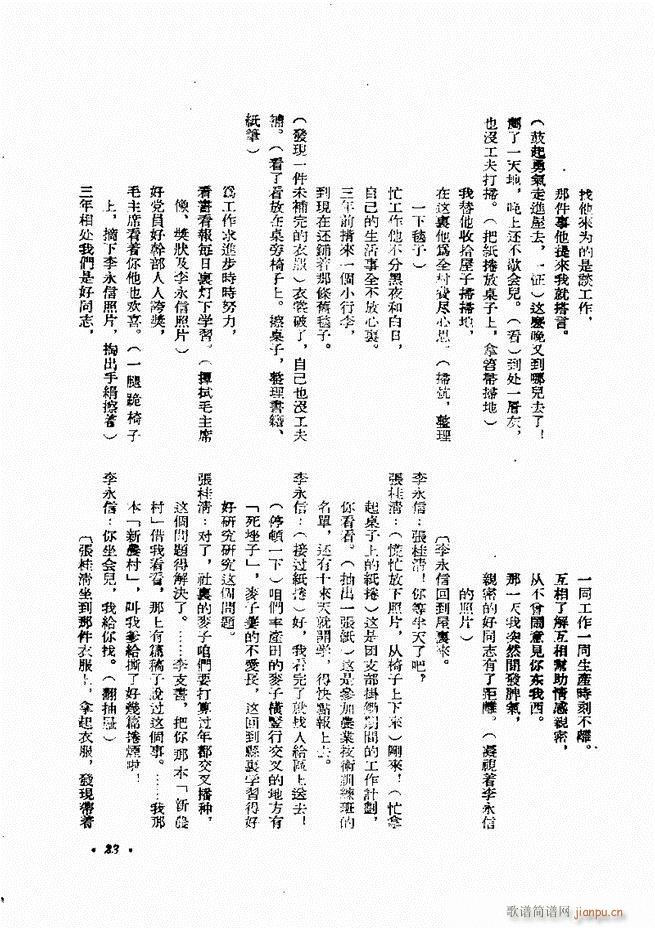 找他来为的是談工作，
那件事他提来我就搭言。
（鼓起勇氣走進屋去，一怔）这麼晚又到哪兒去了！
了一天地，晚上还不歇会兒。（看）到处一層灰，
也沒工夫打掃。（把紙捲放桌子上，拿笤帚掃地）
我替他收拾屋子掃掃地，
在这裏他為全村費尽心思。（掃炕，整理
一下毯子）
忙工作他不分黑夜和白日，
自己的生活事全不放心裏。
三年前揹來一個小行李，
到現在还鋪着那條舊毯子。
（發現一件未補完的衣服）衣裳破了，自己也沒工夫
補。（看了看放在桌旁椅子上。擦桌子，整理書籍、
紙筆）
為工作求進步時時努力，
看書看報每日裏灯下学習。（撣拭毛主席
像、獎狀及李永信照片）
好党員好幹部人人誇獎，
毛主席看着你他也欢喜。（一腿跪椅子
上，摘下李永信照片，掏出手絹擦着）
三年相处我們是好同志，
一同工作一同生產時刻不離。
互相了解互相幫助情感親密，
从不曾鬧意見你东我西。
那一天我突然間發脾氣，
親密的好同志有了距離。（凝視着李永信
的照片）
〔李永信回到屋裏來。
李永信：張桂清！你等半天了吧，
張桂清：（慌忙放下照片，从椅子上下來）剛來！（忙拿
起桌子上的紙捲）这是团支部掛鋤期間的工作計劃，
你看看。（抽出一張紙）这是參加農業技術訓練班的
名單，还有十來天就開学，得快點報上去。
李永信：（接过紙捲）好，我看完了就找人給區上送去！
（停頓一下）咱們丰產田的麥子橫豎行交叉的地方有
「死垤子」，麥子裏的不愛長，这回到縣裏学習得好
好研究研究这個問題。
張桂清：对了，社裏的麥子咱們要打算过年都交叉播种，
这個問題得解决了。……李支書，把你那本「新農
村」借我看看，那上有篇稿子說过这個事。……我那
本「新農村」，叫我爹給撕了好幾篇捲煙啦！
李永信：你坐会兒，我給你找。（翻抽屜）
〔張桂清坐到那件衣服上，拿起衣服，發現帶着
·23·
歌谱简谱网 jianpu.cn